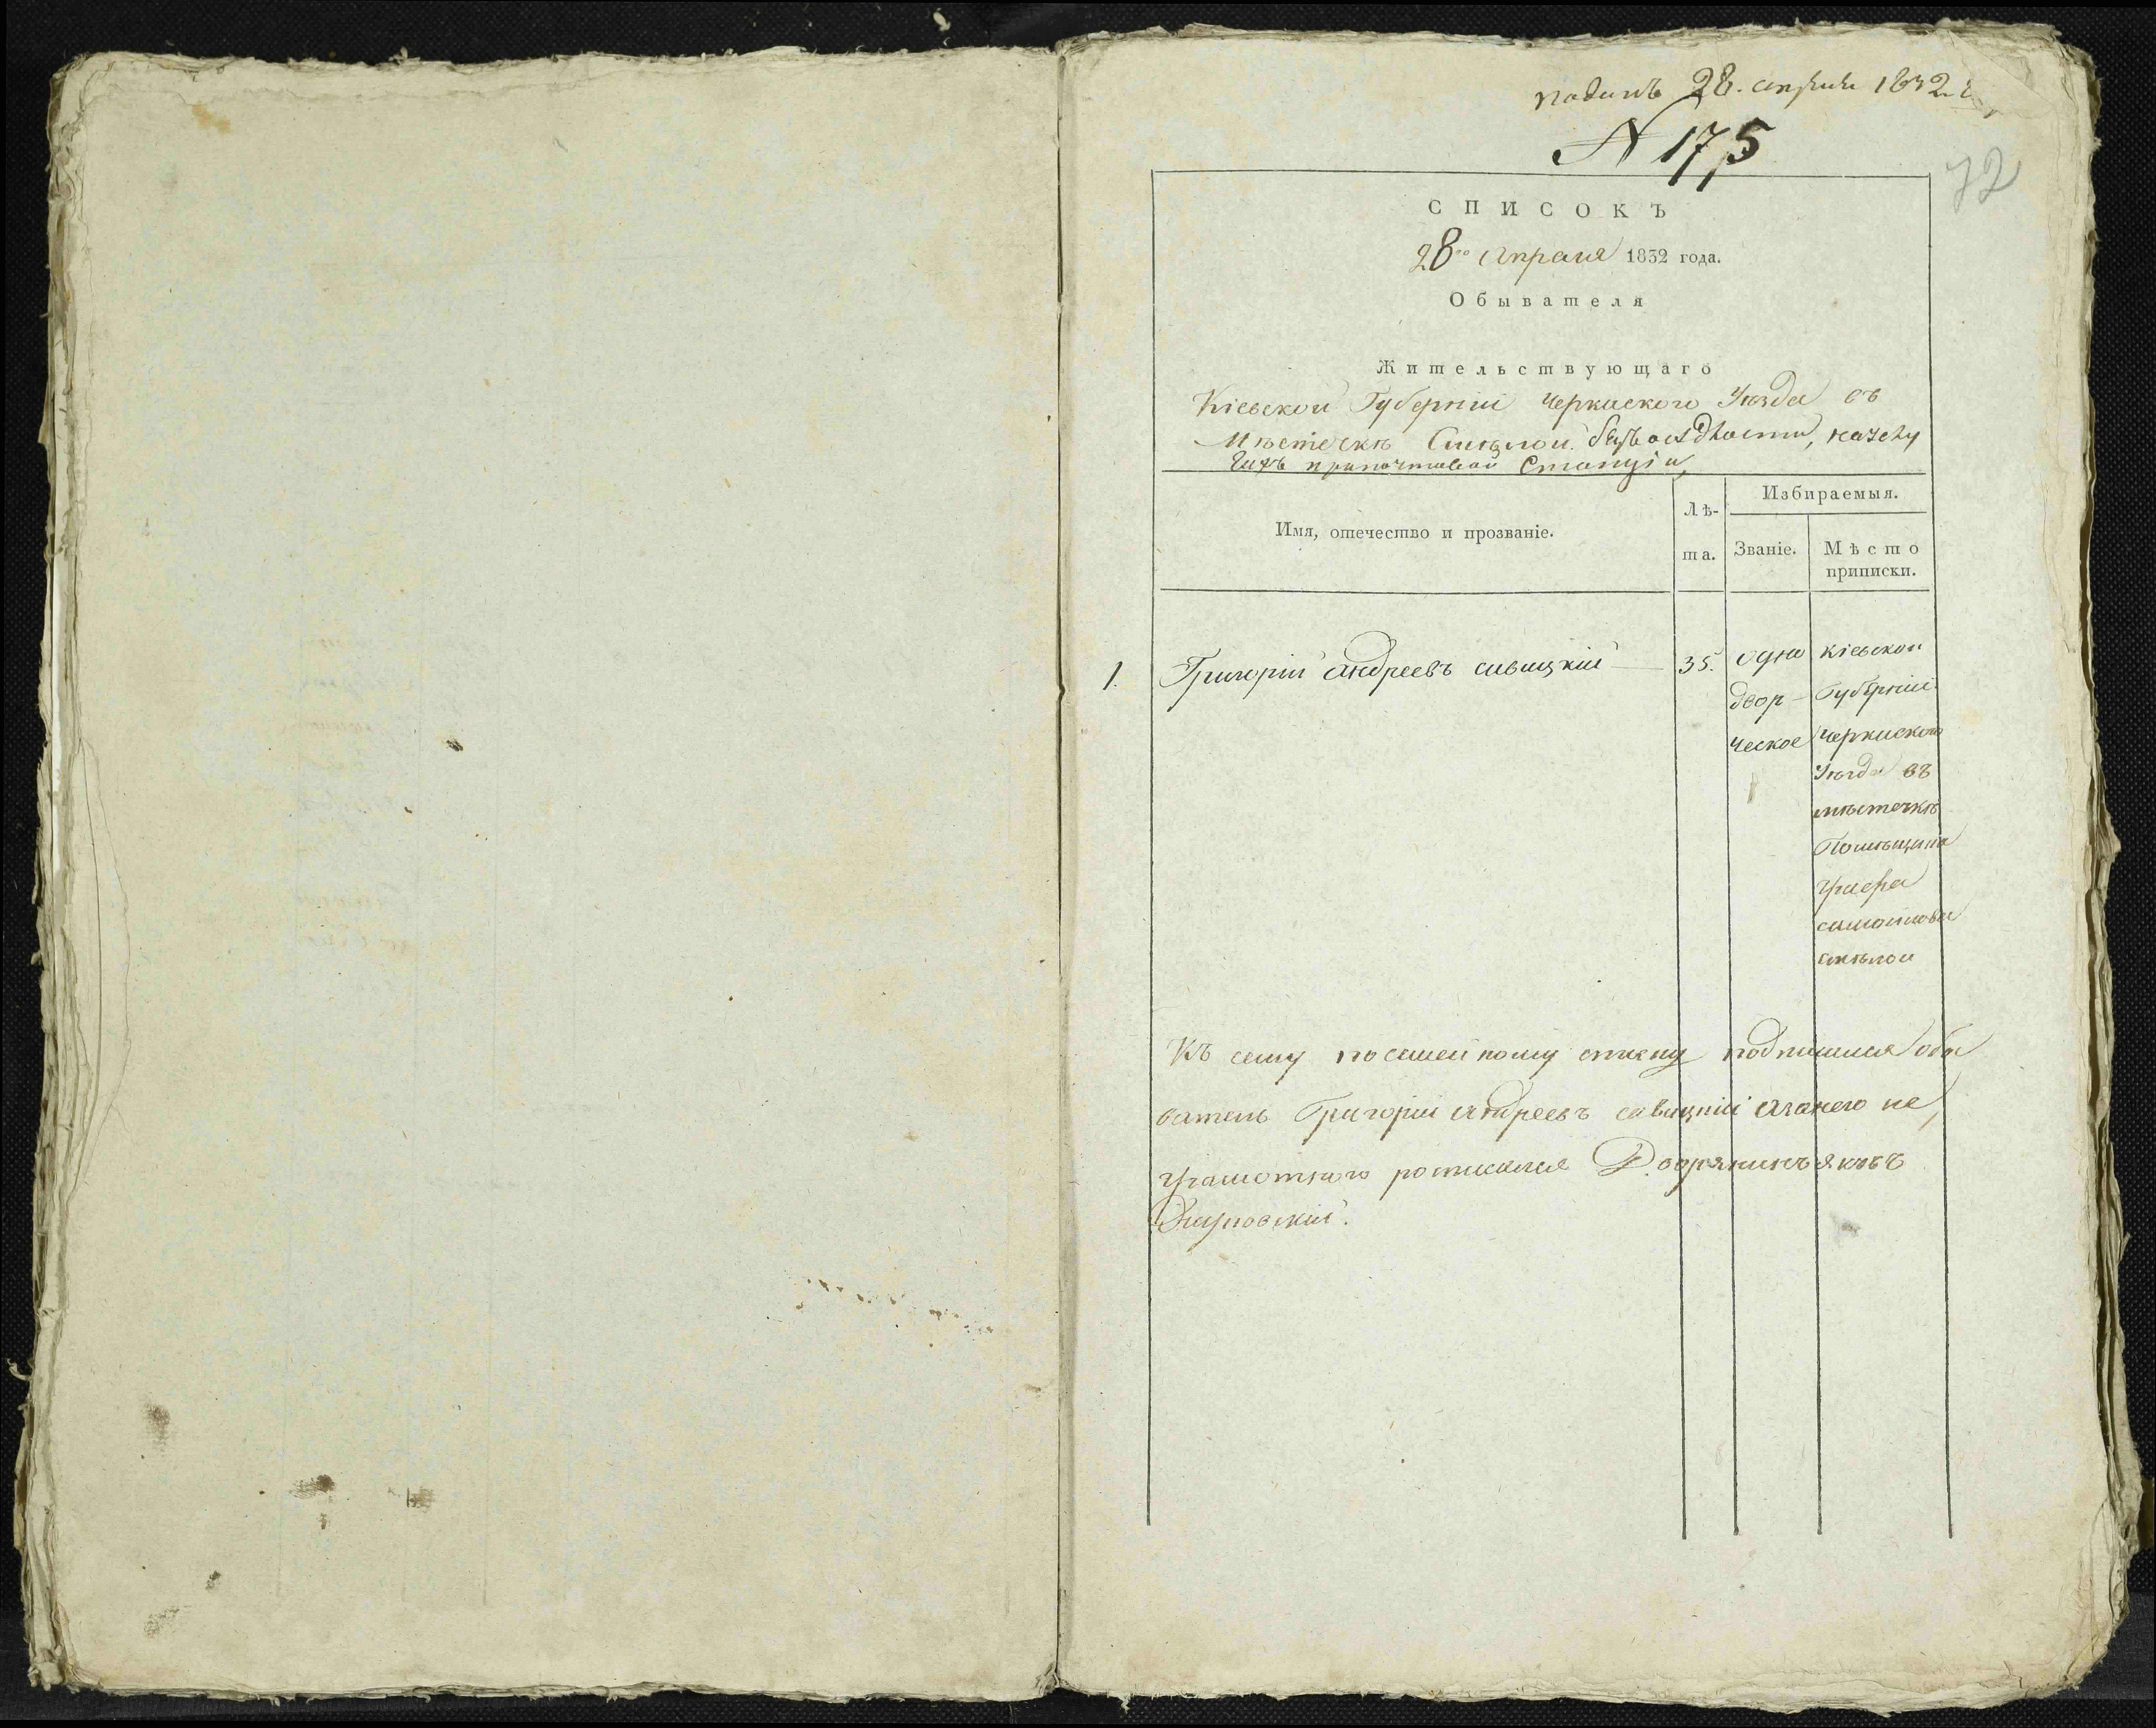 поданъ 28. апрѣля 1832 г
N 175
72
СПИСОКЪ
28го Апреля 1832 года.
Обывателя
Жительствующаго
Кіевской Губерніи Черкаского Уезда въ
Мѣстечкѣ Смѣлой безъ осѣдлости,
почтовой Станціи
Имя, отечество и прозваніе.
Лѣ-
та.
Избираемыя.
Званіе.
Мѣсто
приписки.
1. Григорій андреевъ савицкій — 35.
одно
двор-
ческое
кіевской
Губерніи
Черкаского
Уезда въ
мѣстечкѣ
Помѣщика
графа
самойлова
смѣлой
Къ сему посемейному списку подписался обы
ватель Григорій андреевъ савицкій азанего не
грамотного росписался Дворянинъ яковъ